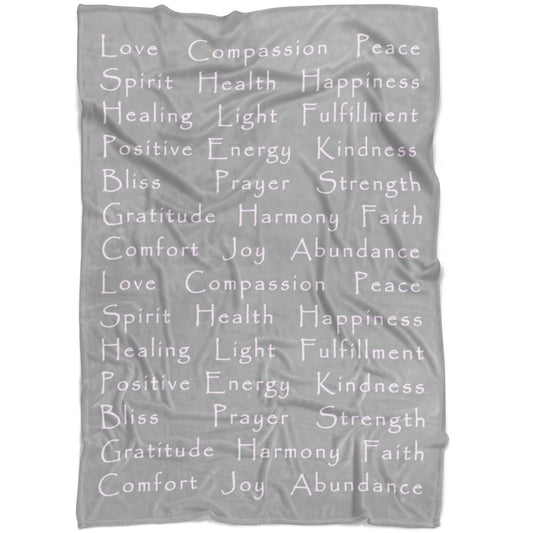 Love Compassion Peace
Spirit Health Happiness
Healing Light Fulfillment
Positive Energy Kindness
Bliss Prayer Strength
Gratitude Harmony Faith
Comfort Joy Abundance
Love Compassion Peace
Spirit Health Happiness
Healing Light Fulfillment
Positive Energy Kindness
Bliss Prayer Strength
Gratitude Harmony Faith
Comfort Joy Abundance